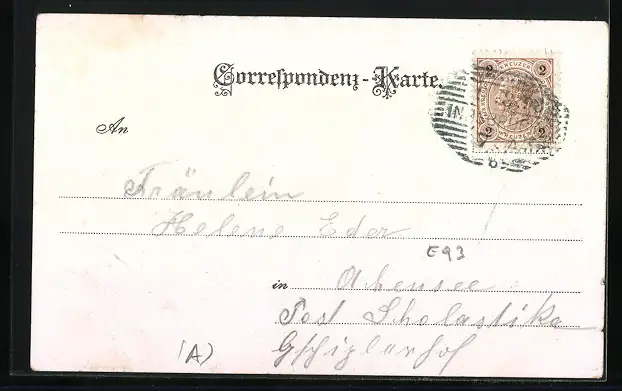 Correspondenz-Karte.
2 KREUZER 2
2 KREUZER 2
An
Fräulein
Helene Eder
E93
in Achensee
Post Scholastika
(A)